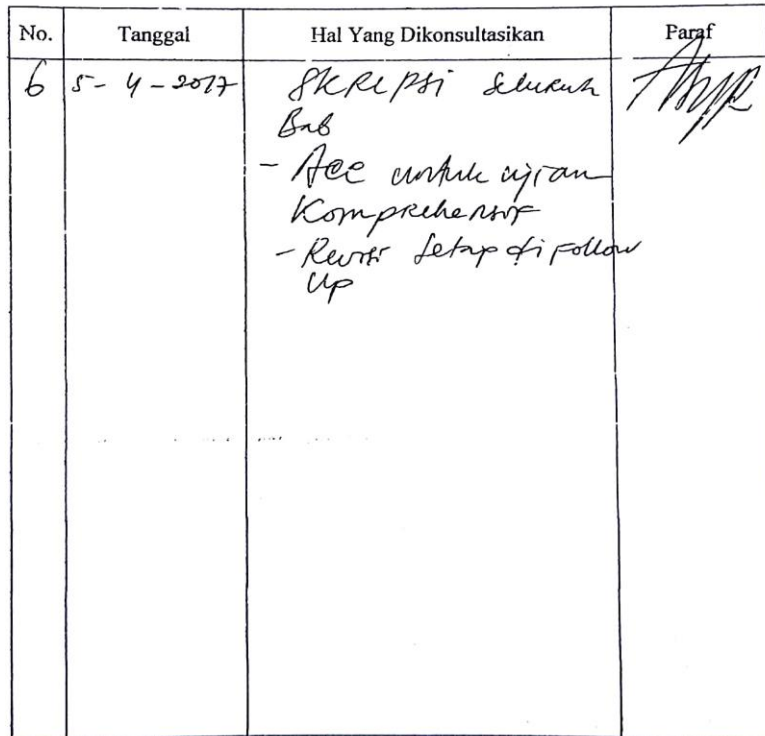 No. Tanggal Hal Yang Dikonsultasikan Paraf
6 5-4-2017 SKRIPSI seluruh
Bab
- Acc untuk ujian
Komprehensif
- Revisi tetap di follow
up